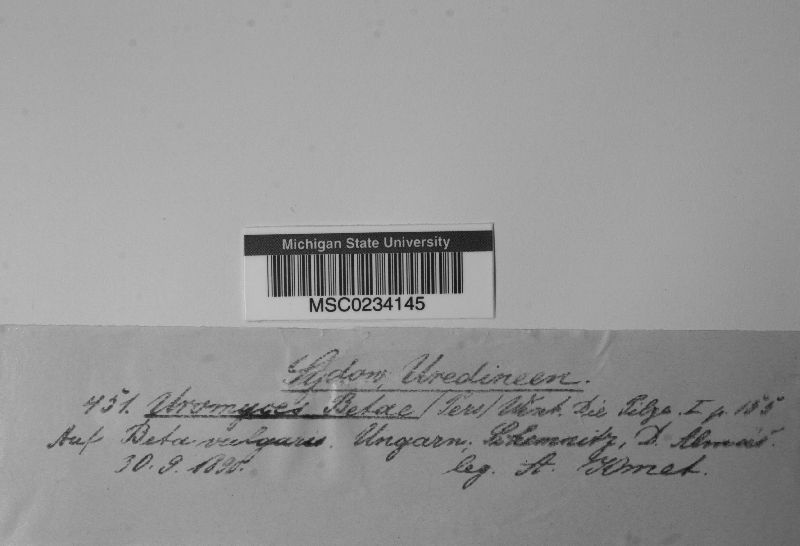 Michigan State University
MSC0234145
Sydow, Uredineen.
451. Uromyces Betae (Pers) Wint. Die Pilze. I p. 155
Auf Beta vulgaris. Ungarn, Schemnitz, D. Almás.
30. 9. leg. A. Kmet.